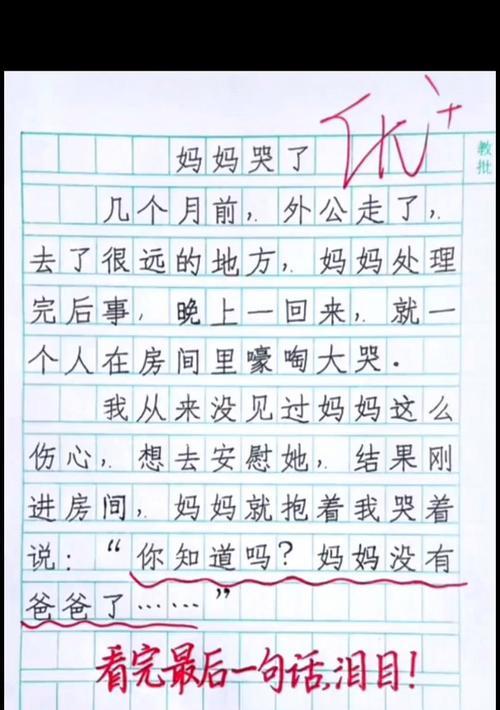 优+
教
批
妈妈哭了
几个月前，外公走了，
去了很远的地方，妈妈处理
完后事，晚上一回来，就一
个人在房间里嚎啕大哭．
我从来没见过妈妈这么
伤心，想去安慰她，结果刚
进房间，妈妈就抱着我哭着
说：“你知道吗？妈妈没有
爸爸了……”
看完最后一句话,泪目！